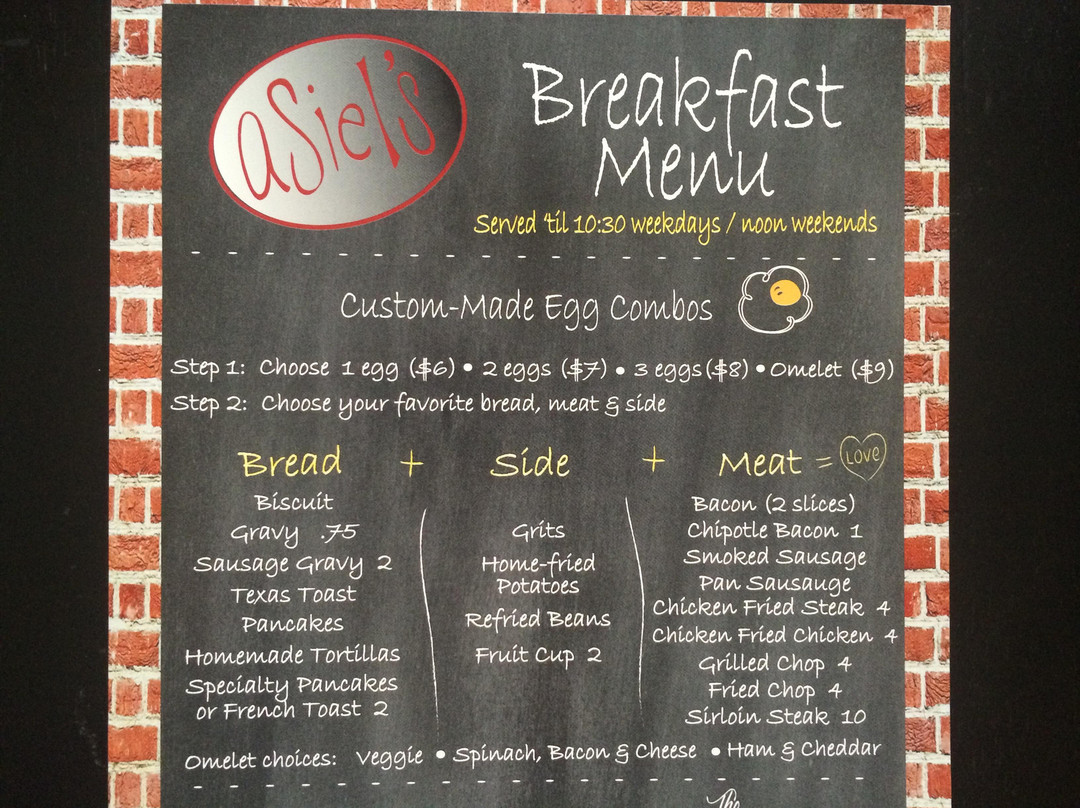 aSiel's
Breakfast
Menu
Served 'til 10:30 weekdays / noon weekends
Custom-Made Egg Combos
Step 1: Choose 1 egg ($6) • 2 eggs ($7) • 3 eggs ($8) • Omelet ($9)
Step 2: Choose your favorite bread, meat & side
Bread + Side + Meat = Love
Biscuit
Gravy .75
Sausage Gravy 2
Texas Toast
Pancakes
Homemade Tortillas
Specialty Pancakes
or French Toast 2
Grits
Home-fried
Potatoes
Refried Beans
Fruit Cup 2
Bacon (2 slices)
Chipotle Bacon 1
Smoked Sausage
Pan Sausauge
Chicken Fried Steak 4
Chicken Fried Chicken 4
Grilled Chop 4
Fried Chop 4
Sirloin Steak 10
Omelet choices: Veggie • Spinach, Bacon & Cheese • Ham & Cheddar
The